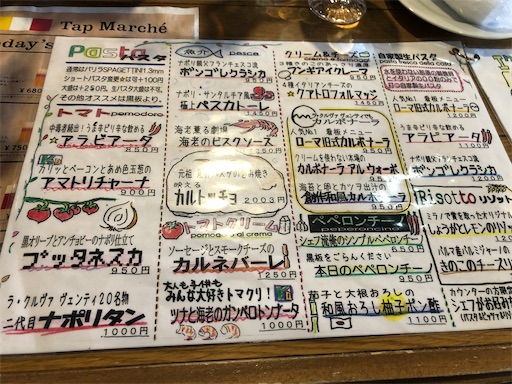 Tap Marché
day's
Pasta
パスタ
通常はバリラSPAGETTINI1.3mm
ショートパスタ変更は可+100円
大盛は+250円。生パスタ大盛は不可。
その他オススメは黒板より。
トマト pomodoro
中毒者続出!うま辛ピリ辛な飲める
アラビアータ
850円
カリッとベーコンとあめ色玉葱の
アマトリチャーナ
900円
黒オリーブとアンチョビーのナポリ仕立て
プッタネスカ
950円
ラ・クルヴァ ヴェンティ20名物
二代目 ナポリタン
1000円
魚介 pesca
ナポリ親父フランチェスコ流
ボンゴレクラシカ
950円
ナポリ・サンタルチア風
極上ペスカトーレ
1450円
海老薫る劇場
海老のビスクソース
元祖
映える
カルトッチョ
2002円
トマトクリーム
pomodoro al crema
ソーセージとスモークチーズの
カルネバーレ
1250円
大人も子供も
みんな大好きトマクリ!
ツナと海老のガンベロトンナータ
1100円
クリーム&チーズ
3種きのこのこっくり濃厚
フンギアイクレーマ
4種イタリアンチーズの
クアトロフォルマッジ
1450円
ラ・クルヴァ ヴェンティのカルボナーラ
人気No.1 看板メニュー
ローマ旧式カルボナーラ
1000円
クリームを使わない本場の
カルボナーラ アル・ウォーボ
海苔と卵とカツオ出汁の
創作和風カルボナーラ
ペペロンチーノ
peperoncino
シェフ直伝のシンプルペペロンチーノ
650円
黒板をごらんください
本日のペペロンチーノ
茄子と大根おろしの
和風おろし柚子ポン酢
自家製生パスタ
pasta fresca della casa
人気No.1 看板メニュー
ローマ旧式カルボナーラ
うま辛ピリ辛な飲める
アラビアータ
ナポリ親父フランチェスコ流
ボンゴレクラシカ
Risotto リゾット
ミラノで賞を取ったオリジナル
しょうがとレモンのリゾ
パルマ産パルミジャーノの
きのことチーズ
カウンターの方限定
シェフお好み